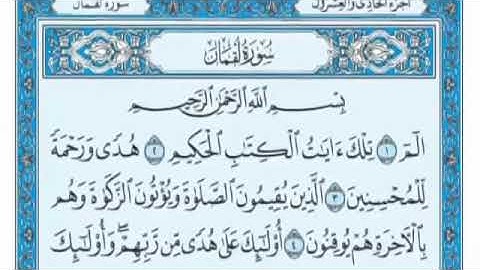 الجزء الحادي والعشرون
سورة لقمان
سُورَةُ لُقْمَانَ
بِسْمِ اللَّهِ الرَّحْمَٰنِ الرَّحِيمِ
الٓمٓ ١ تِلْكَ ءَايَٰتُ ٱلْكِتَٰبِ ٱلْحَكِيمِ ٢ هُدًى وَرَحْمَةً
لِّلْمُحْسِنِينَ ٣ ٱلَّذِينَ يُقِيمُونَ ٱلصَّلَوٰةَ وَيُؤْتُونَ ٱلزَّكَوٰةَ وَهُم
بِٱلْءَاخِرَةِ هُمْ يُوقِنُونَ ٤ أُو۟لَٰٓئِكَ عَلَىٰ هُدًى مِّن رَّبِّهِمْ ۖ وَأُو۟لَٰٓئِكَ